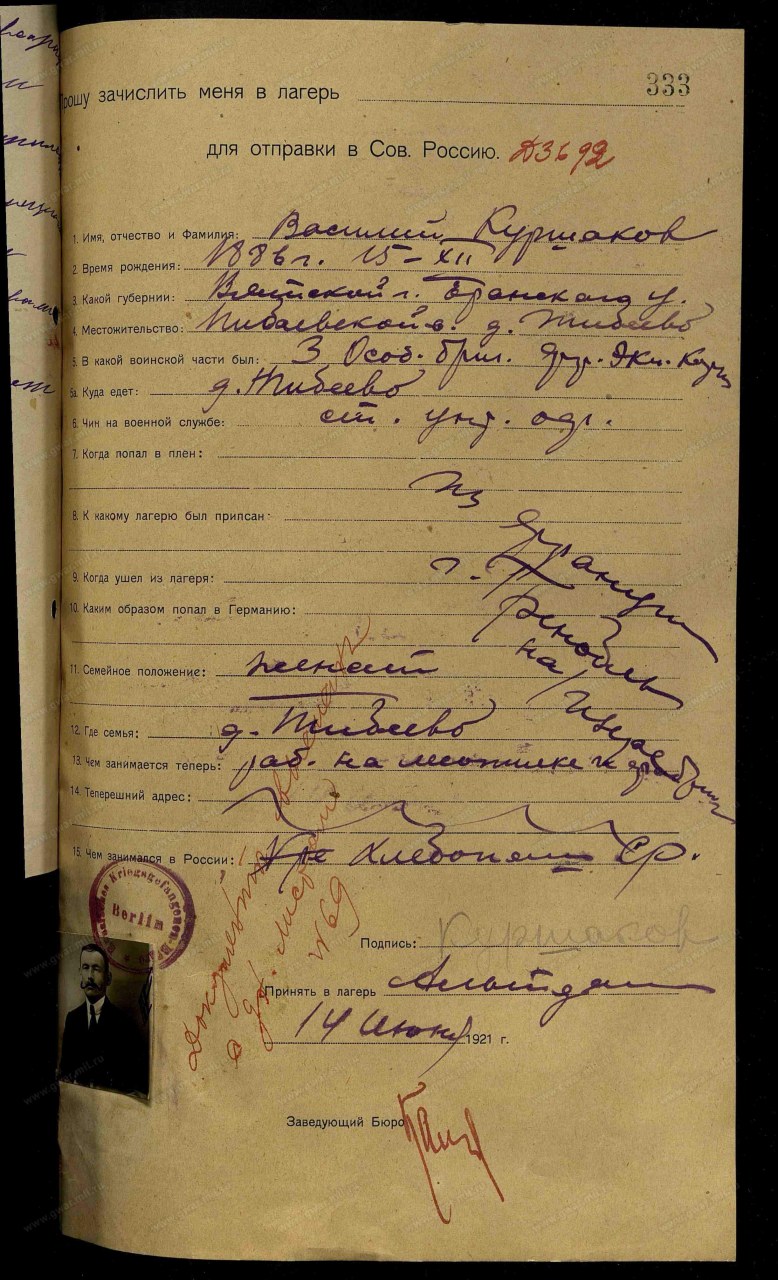 333
Прошу зачислить меня в лагерь
для отправки в Сов. Россию. Д3692
1. Имя, отчество и Фамилия: Василий Куршаков
2. Время рождения: 1886 г. 15-XII
3. Какой губернии: Вятской г. у.
4. Местожительство: д. Жибеево
5. В какой воинской части был: 3 Особ. бриг. Экс. Кор
5а. Куда едет: д. Жибеево
6. Чин на военной службе: ст. унт. оф.
7. Когда попал в плен:
Из
8. К какому лагерю был приписан:
Франции
9. Когда ушел из лагеря: г. Гренобль
10. Каким образом попал в Германию:
на
11. Семейное положение: женат
12. Где семья: д. Жибеево
13. Чем занимается теперь: раб. на
14. Теперешний адрес:
15. Чем занимался в России: Хлебопаш Ср.
Berlin
Подпись: Куршаков
Принять в лагерь Альтдам
14 Июня 1921 г.
Документы
N 69
Заведующий Бюро